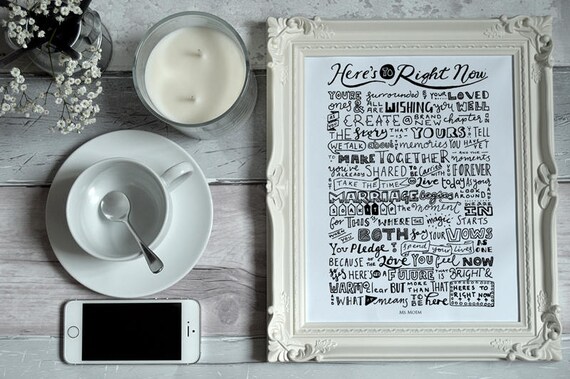 Here's to Right Now
YOU'RE surrounded by YOUR LOVED
ones & ALL ARE WISHING you WELL
CREATE a BRAND NEW chapter
THE story THAT IS YOURS to TELL
WE TALK about memories YOU HAVEN'T
MAKE TOGETHER moments
you've ALREADY SHARED TO be FOREVER
TAKE THE TIME to Live today AS your
MARRIAGE begins
the moment IN
for THIS is WHERE the magic STARTS
BOTH say YOUR VOWS
You PLEDGE to spend your lives AS ONE
BECAUSE OF THE Love YOU feel NOW
HERE'S to A FUTURE THAT IS BRIGHT &
WARM & clear BUT MORE THAN THAT
& WHAT it means TO BE here
HERE'S TO RIGHT NOW
MS MOEM